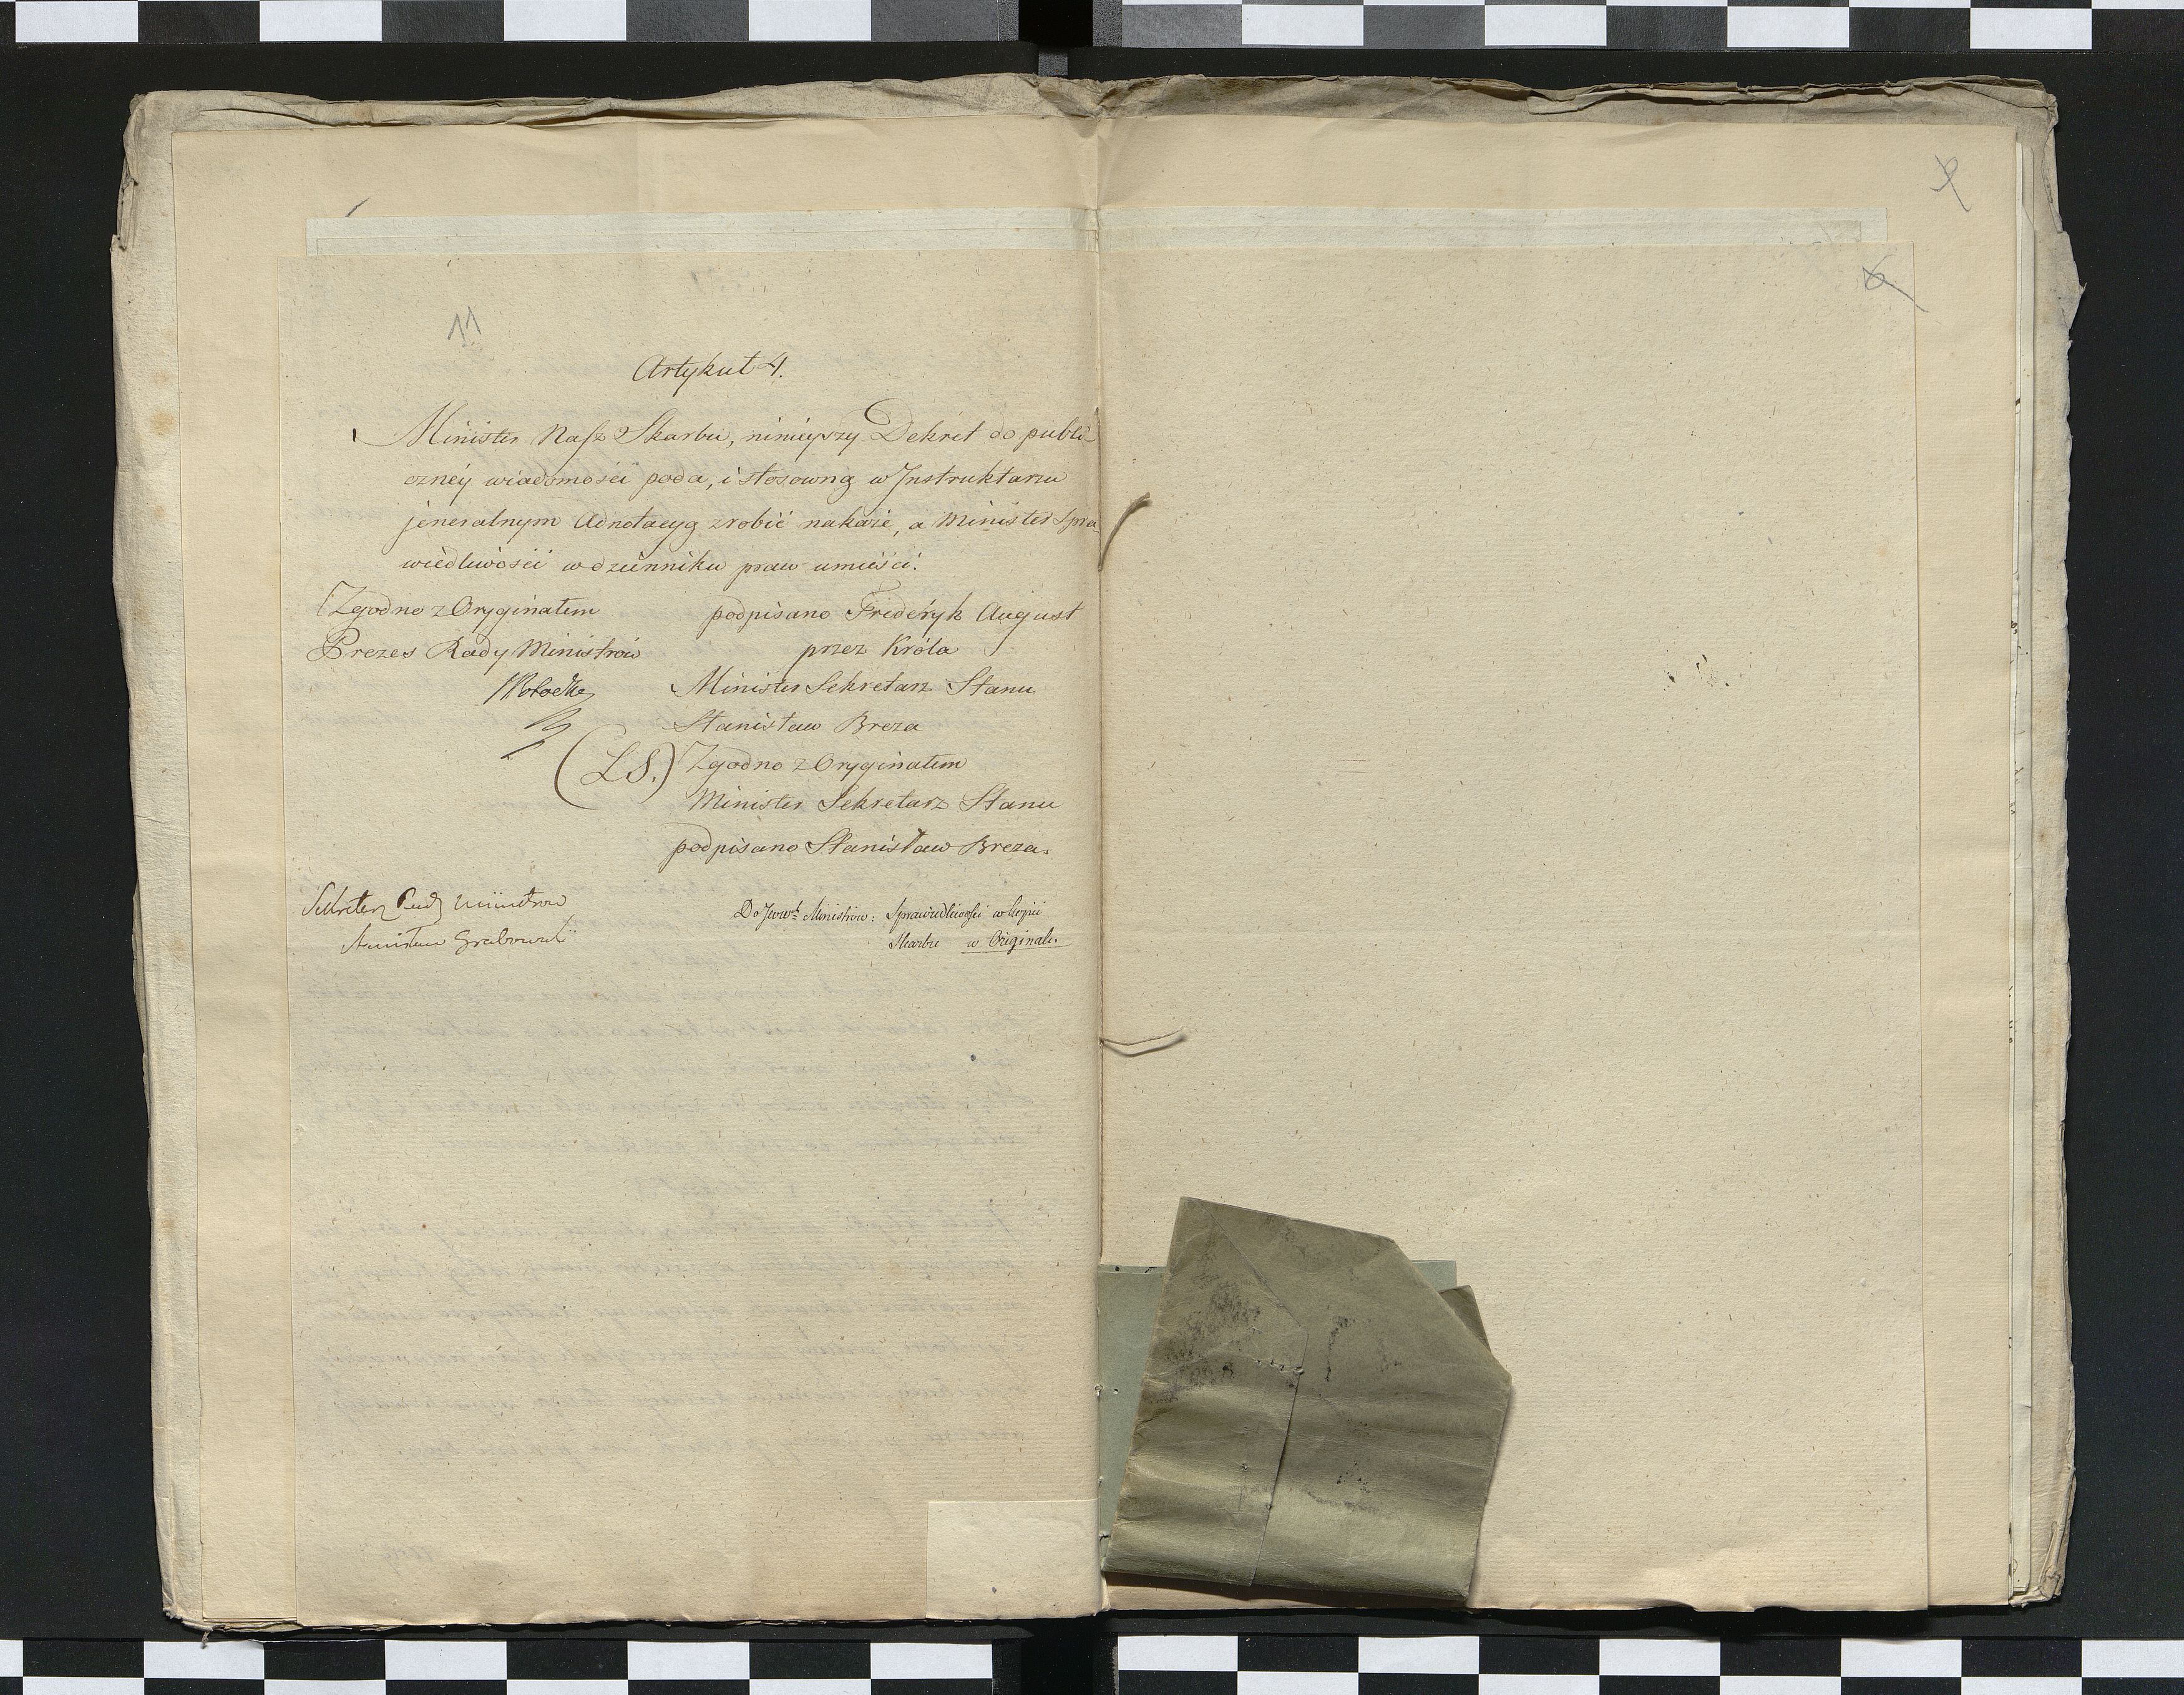 11
Artykuł 4.
Minister Nasz Skarbu, ninieyszy Dekret do publi-
czney wiadomości poda, i stosowną w Instruktarzu
jeneralnym Adnotacyą zrobić nakaże, a Minister Spra-
wiedliwości w dzienniku praw umieści.
Zgodno z Oryginałem
Prezes Rady Ministrów
Potocki
podpisano Frideryk August
przez Króla
Minister Sekretarz Stanu
Stanisław Breza
(L.S.) Zgodno z Oryginałem
Minister Sekretarz Stanu
podpisano Stanisław Breza.
Sekretarz Rady Ministrow
Stanisław Grabowski
Do Jwwch Ministrów: Sprawiedliwości w kopii
Skarbu w Originale.
6